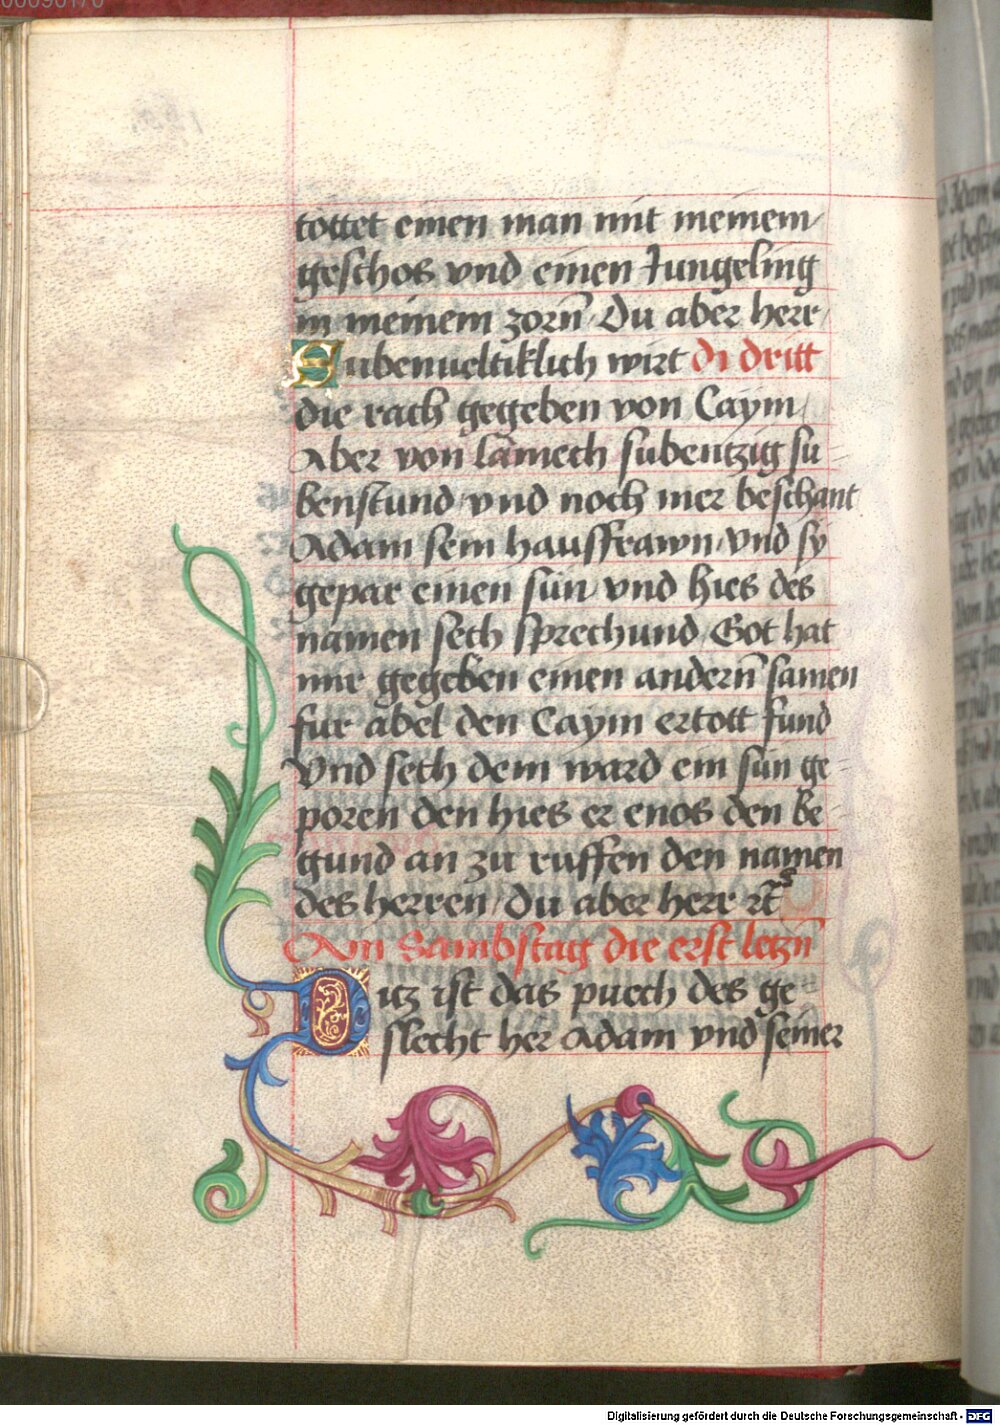 00090170
tottet einen man mit meinem
geschos vnd einen Jungeling
in meinem zorn̄ Du aber herr
Subenueltiklich wirt di dritt
die rach gegeben von Caym
Aber von lamech subentzig su-
benstund vnd noch mer beschant
Adam sein haussfrawn vnd sy
gepar einen sun vnd hies des
namen seth sprechund Got hat
mir gegeben einen andern̄ samen
fur abel den Caym ertott Fund
Vnd seth dem ward ein sun ge-
poren den hies er enos den be-
gund an zu ruffen den namen
des herren Du aber herr rc̄
Am Sambstag die erst leczn̄
Ditz ist das puech des ge-
slecht her Adam vnd seiner
Digitalisierung gefördert durch die Deutsche Forschungsgemeinschaft - DFG